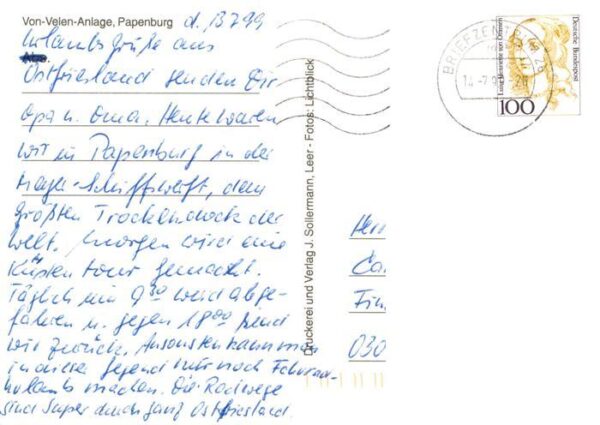 Von-Velen-Anlage, Papenburg
d. 13 7 99
Urlaubsgrüße aus
Ostfriesland senden Dir
Opa u. Oma. Heute waren
wir in Papenburg in der
Meyer-Schiffswerft, dem
größten Trockendock der
Welt. Morgen wird eine
Küsten tour gemacht.
Täglich um 9 30 wird abge-
fahren u. gegen 18 00 sind
wir zurück. Ansonsten kann man
in dieser Gegend nur noch Fahrrad-
urlaub machen. Die Radwege
sind super durch ganz Ostfriesland.
Druckerei und Verlag J. Sollermann, Leer - Fotos: Lichtblick
BRIEFZENTRUM 26
Deutsche Bundespost
100
Herr
Ca
Fin
030